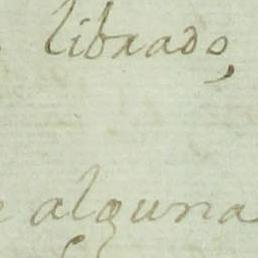 librado,
e alguna